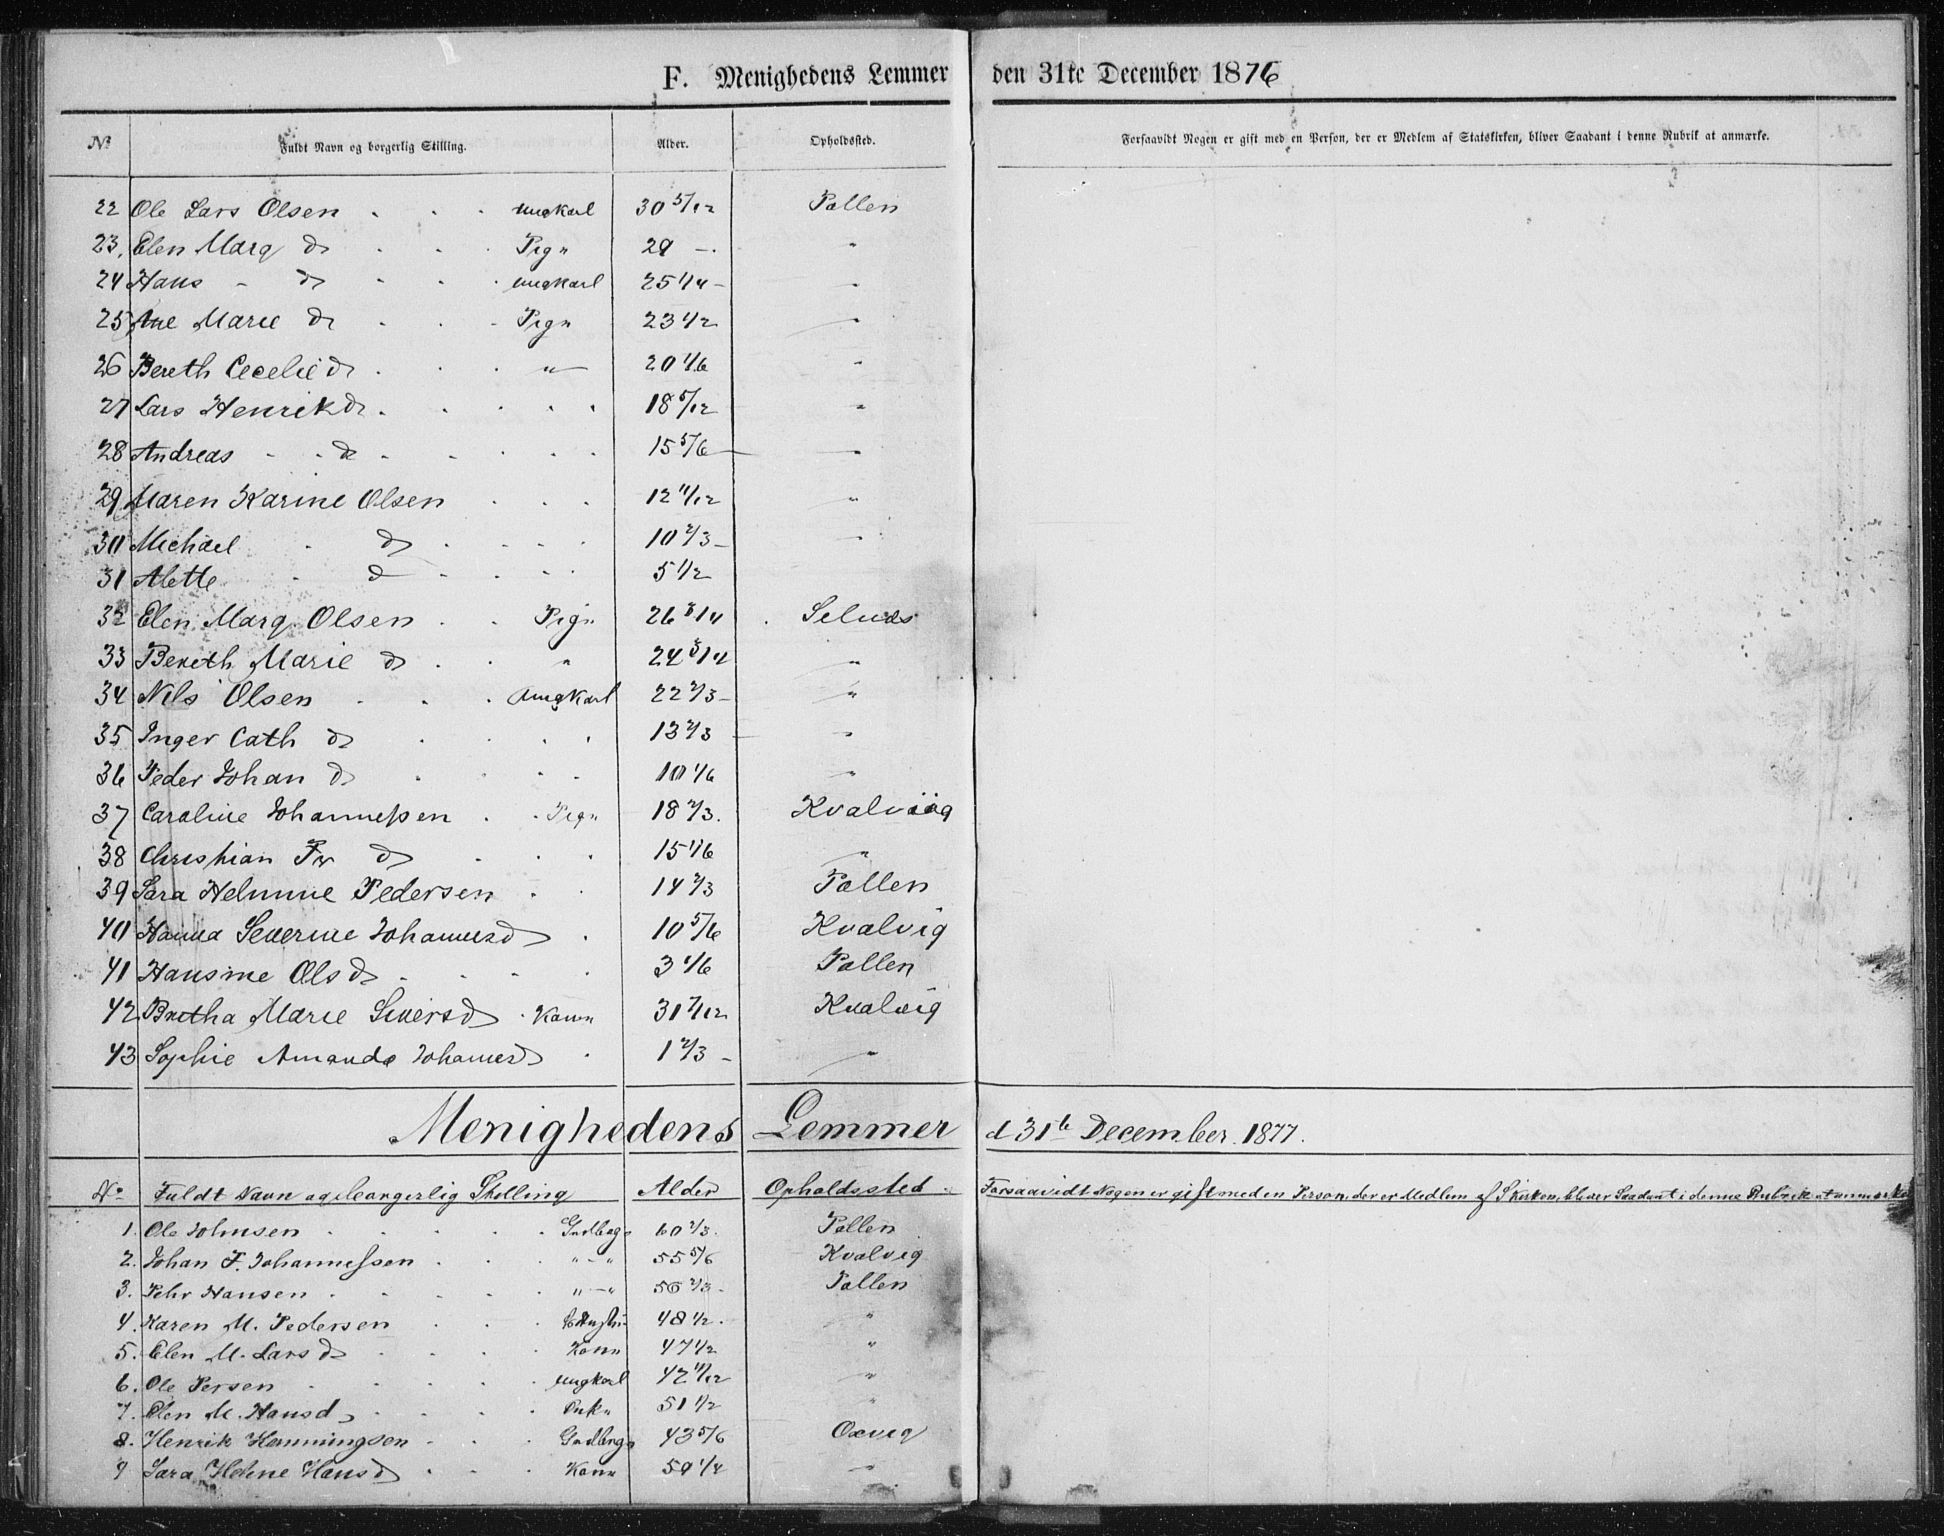 F. Menighedens Lemmer den 31te December 1876
No Fuldt Navn og borgerlig Stilling. Alder. Opholdssted. Forsaavidt Nogen er gift med en Person, der er Medlem af Statskirken, bliver Saadant i denne Rubrik at anmærke.
22 Ole Lars Olsen . . . ungkarl 30 5/12 Pollen
23. Elen Marg do . . . Pign 29 - "
24 Hans - do . . . ungkarl 25 1/4 - "
25 Ane Marie do . . . Pign 23 1/2 "
26 Bereth Cecelie do . . . " 20 1/6 "
27 Lars Henrik do . . . . . 18 5/12 "
28 Andreas - do . . . . . 15 5/6 "
29 Maren Karine Olsen . . . 12 11/12 "
30 Michael . do . . . . 10 2/3 - "
31 Alette . do . . . . 5 1/2
32 Elen Marg. Olsen . . Pign 26 3/4 Selnæs
33 Bereth Marie do . . " 24 3/4 "
34 Nils Olsen . . . Ungkarl 22 2/3 - "
35 Inger Cath do . . . . 13 2/3 "
36 Peder Johan do . . . . 10 1/6 "
37 Caroline Johannessen . . Pign 18 2/3. Kvalviig
38 Christian Fr do . . . 15 1/6 "
39 Sara Helmine Pedersen . . 14 2/3 Pollen
40 Hanna Severine Johannesd . 10 5/6 Kvalvig
41 Hansine Olsd . . . . 3 1/6 Pollen
42 Bretha Marie Siversd . Konn 31 7/12 Kvalvig
43 Sophie Amanda Johannesd . 1 2/3 - "
Menighedens Lemmer d 31te December 1877.
No Fuldt Navn og borgerlig Stilling Alder Opholdssted Forsaavidt Nogen er gift med en Person, der er Medlem af Skirken, bliver Saadant i denne Rubrik at anmærke
1. Ole Johnsen . . . . . Gudbrgs 60 2/3. Pollen
2. Johan F. Johannessen . . . "-" 55 5/6 Kvalvig
3. Pehr Hansen . . . . . "-" 56 2/3. Pollen
4. Karen M. Pedersen . . . 48 1/2. "
5. Elen M. Larsd . . . . Konn 47 1/2 "
6. Ole Persen . . . . . ungkarl 42 11/12 "
7. Elen M. Hansd . . . . Enkn 51 1/2 "
8. Henrik Hemmingsen . . . Gudbrgs 43 5/6 Oxvig
9 Sara Helene Hansd . . . Konn 59 1/4 "